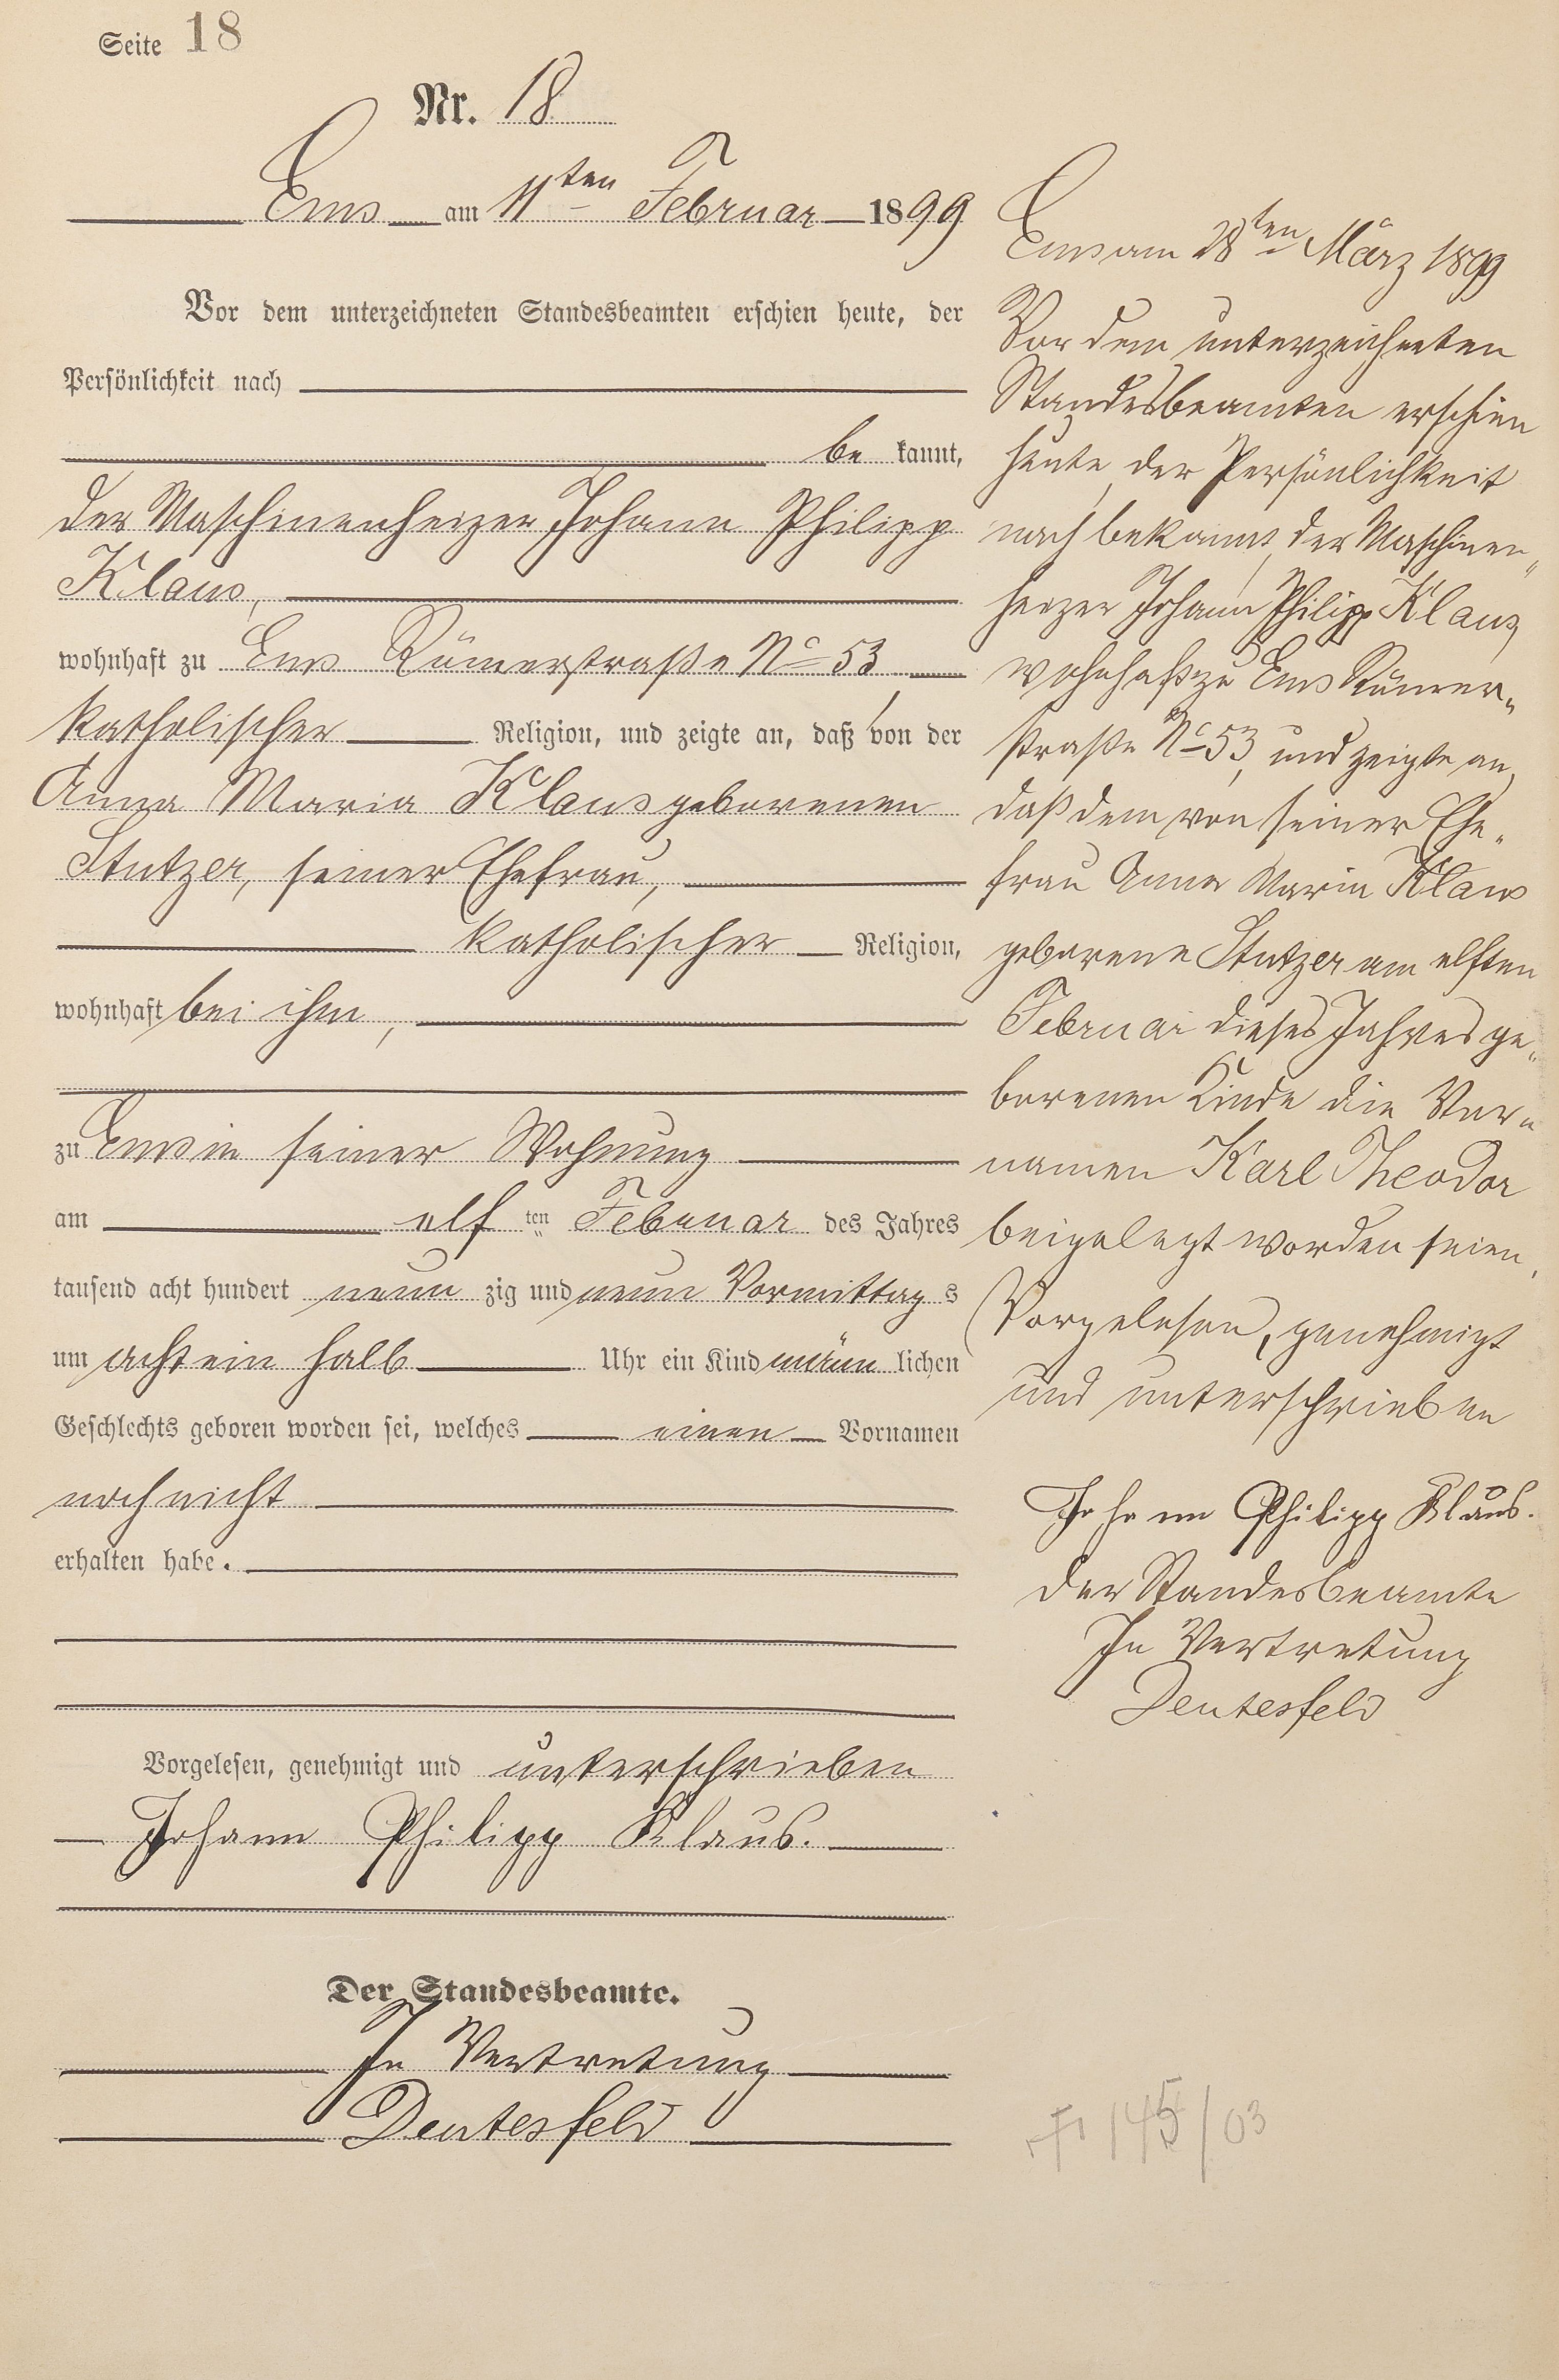 Seite 18
Nr. 18
Ems am 11ten Februar 1899
Vor dem unterzeichneten Standesbeamten erschien heute, der
Persönlichkeit nach
be kannt,
der Maschinenheizer Johann Philipp
Klaus,
wohnhaft zu Ems Römerstraße No 53,
katholischer Religion, und zeigte an, daß von der
Anna Maria Klaus geborenen
Stutzer, seiner Ehefrau,
katholischer Religion,
wohnhaft bei ihm,
zu Ems in seiner Wohnung
am elf ten Februar des Jahres
tausend acht hundert neun zig und neun Vormittag s
um acht ein halb Uhr ein Kind männ lichen
Geschlechts geboren worden sei, welches einen Vornamen
noch nicht
erhalten habe.
Vorgelesen, genehmigt und unterschrieben
Johann Philipp Klaus.
Der Standesbeamte.
In Vertretung
Deutesfeld
Ems am 28ten März 1899
Vor dem unterzeichneten
Standesbeamten erschien
heute, der Persönlichkeit
nach bekannt, der Maschinen„
heizer Johann Philipp Klaus,
wohnhaft zu Ems Römer„
straße No 53, und zeigte an,
daß dem von seiner Ehe„
frau Anna Maria Klaus
geborene Stutzer am elften
Februar dieses Jahres ge„
borenen Kinde die Vor„
namen Karl Theodor
beigelegt worden seien.
Vorgelesen, genehmigt
und unterschrieben
Johann Philipp Klaus.
Der Standesbeamte
In Vertretung
Deutesfeld
145/03